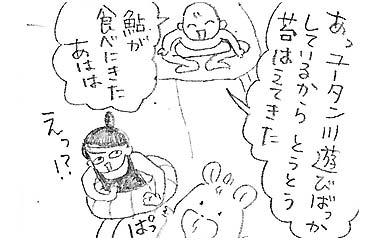 あっユータン川遊びばっか
しているからとうとう
苔はえてきた
鮎が
食べにきた
あはは
えっ!?
ぱっ